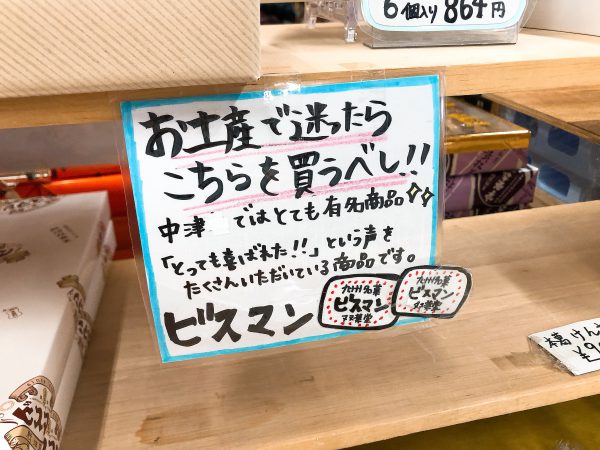 6個入り 864円
お土産で迷ったら
こちらを買うべし!!
中津 ではとても有名商品
「とっても喜ばれた!!」という声を
たくさんいただいている商品です。
ビスマン
九州名菓
ビスマン
双葉堂
九州名菓
ビスマン
双葉堂
本葛 けん
ビスマン